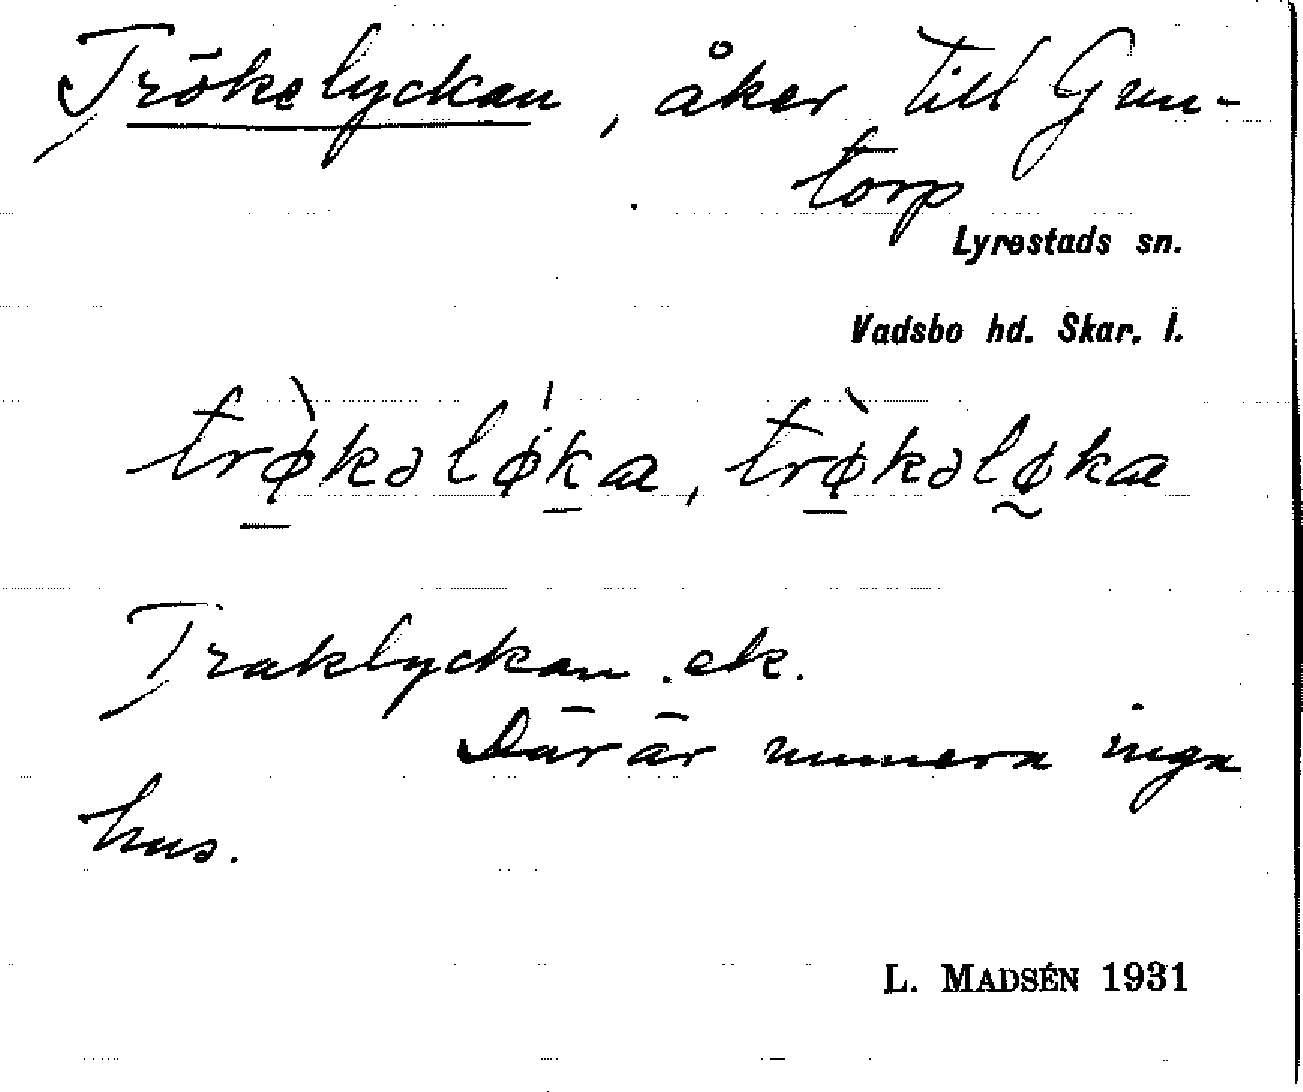 Trökelyckan, åker till Gun-
torp
Lyrestads sn.
Vadsbo hd. Skar. l.
trø̀kəlǿka, trø̀kəløka
Traklyckan. ek.
Där är numera inga
hus.
L. MADSÉN 1931